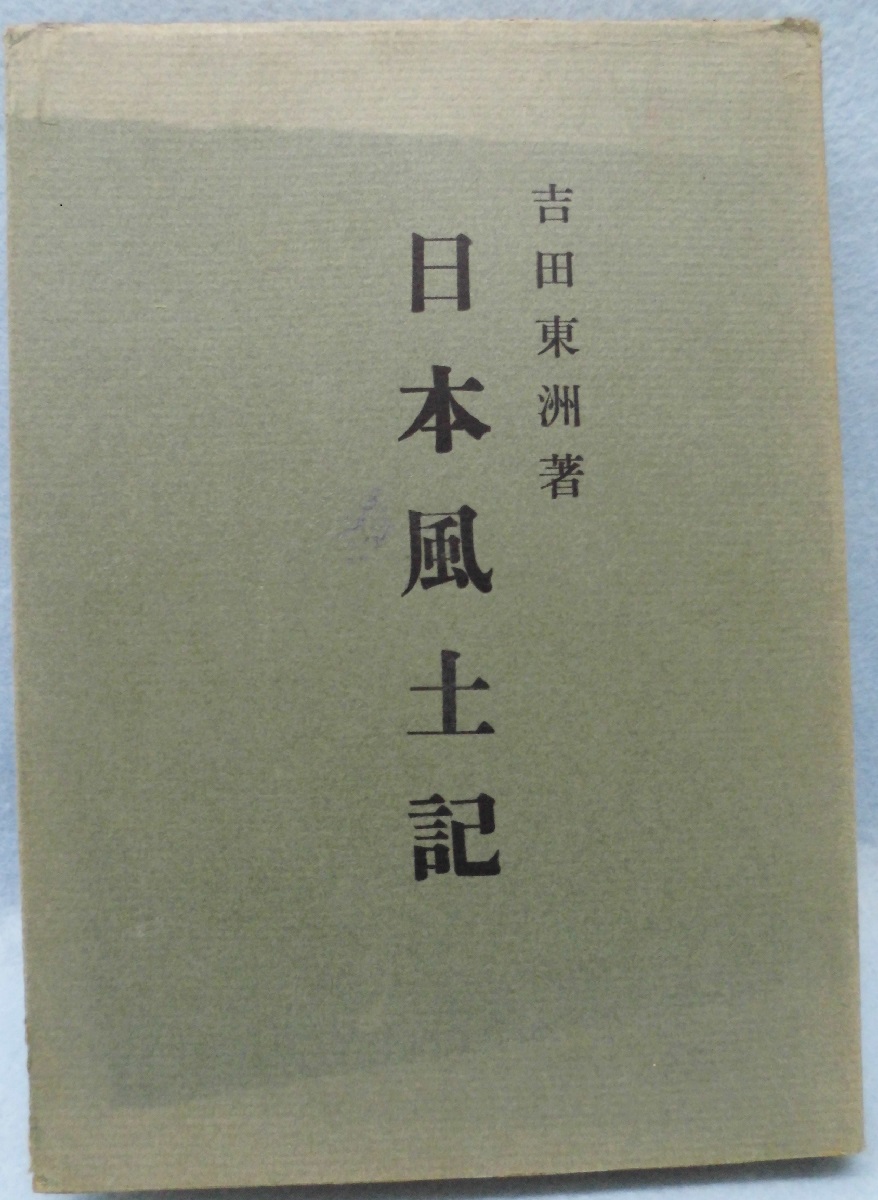 吉田東洲著
日本風土記